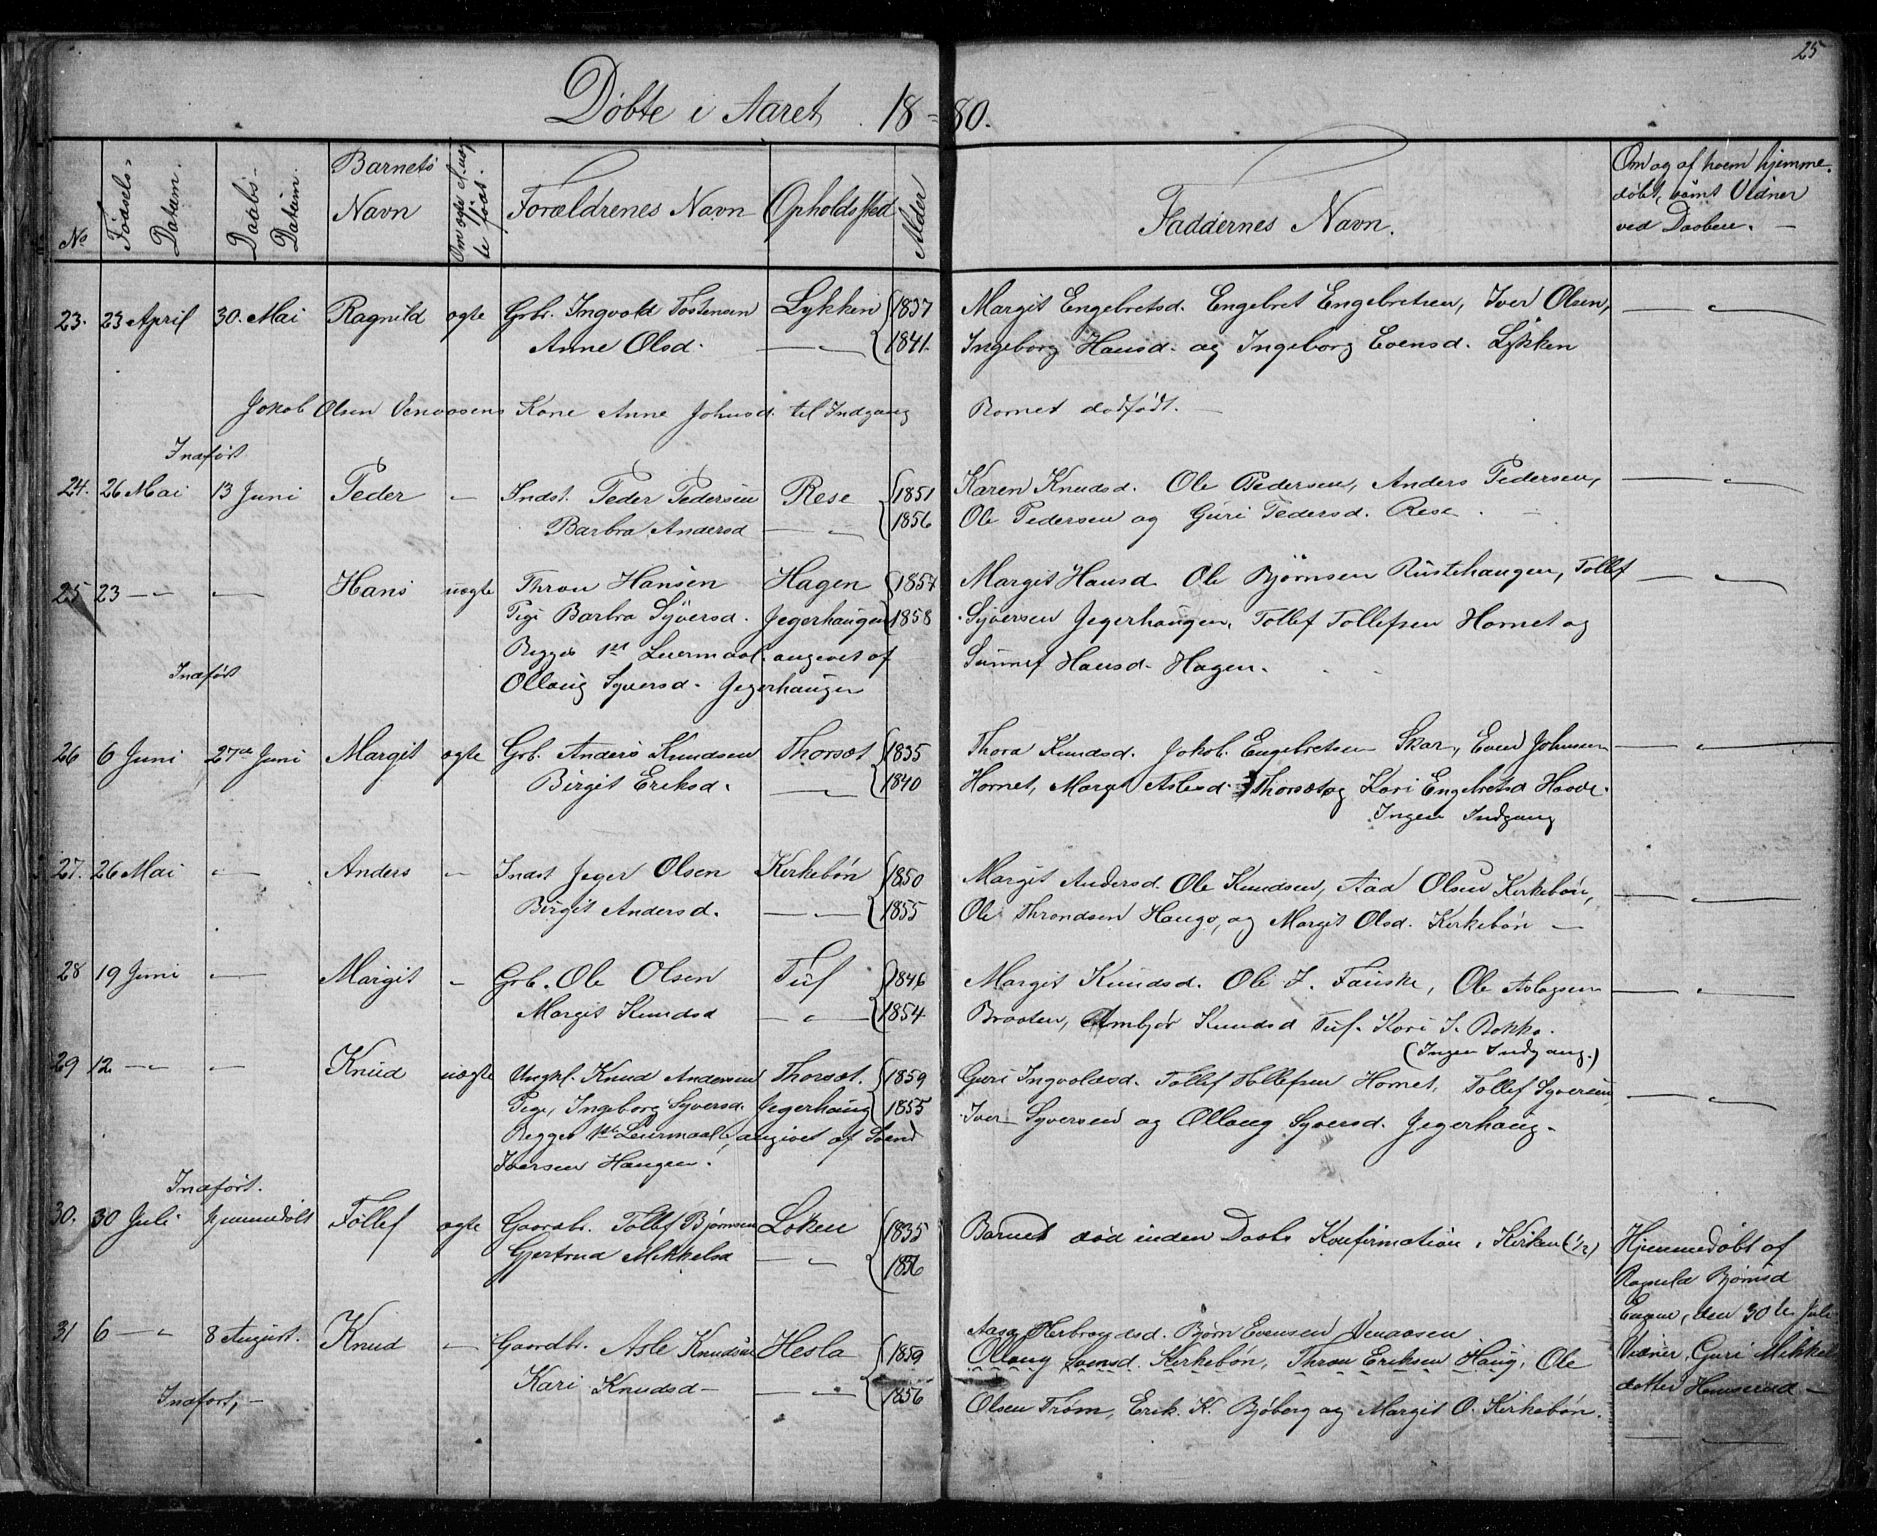 25
Døbte i Aaret 18-80.
No
Fødsels-Datum.
Daabs-Datum.
Barnets Navn
Om ægte el. uægte født.
Forældrenes Navn
Opholdssted
Alder
Faddernes Navn.
Om og af hvem hjemmedøbt, samt Vidner ved Daaben. -
23. 23 April 30. Mai Ragnild ægte Grbr. Ingvold Tostensen Lykken 1837 Margit Engebretsd. Engebret Engebretsen, Iver Olsen,
Anne Olsd. 1841. Ingeborg Hansd. og Ingeborg Evensd. Lykken
Jakob Olsen Venaasens Kone Anne Johnsd. til Indgang Barnet dødfødt. -
Indført
24. 26 Mai 13 Juni Peder - Indst. Peder Pedersen Rese 1851 Karen Knudsd. Ole Pedersen, Anders Pedersen,
Barbra Andersd 1856 Ole Pedersen og Guri Pedersd. Rese
25 23 Hans uægte Thron Hansen Hagen 1857 Margit Hansd. Ole Bjørnsen Rustehaugen, Tollef
Pige Barbra Syversd. Jegerhaugen 1858 Syversen Jegerhaugen, Tollef Tollefsen Hornet og
Begges 1st Leiermaal. angivet af Sunnif Hansd. Hagen.
Indført
Ollaug Syversd. Jegerhaugen
26 6 Juni 27de Juni Margit ægte Grb. Anders Knudsen Thorset 1835 Thora Knudsd. Jokob. Engebretsen Skar, Even Johnsen
Birgit Eriksd. 1840 Hornet, Margit Aslesd. Thorset og Kari Engebretsd Haade.
Ingen Indgang
27. 26 Mai Anders - Indst Jeger Olsen Kirkebøn 1850 Margit Andersd. Ole Knudsen, Aad Olsen Kirkebøn,
Birgit Andersd. 1855 Ole Throndsen Haugo, og Margit Olsd. Kirkebøn -
28 19 Juni Margit - Grb. Ole Olsen Tuf 1846 Margit Knudsd. Ole J. Fauske, Ole Aslagsen
Margit Knudsd 1854 Braaten, Ambjør Knudsd Tuf. Kari I. Bakko.
(Ingen Indgang.)
29 12 Knud uægte Ungkl. Knud Andersen Thorset. 1859 Guri Ingvoldsd. Tollef Tollefsen Hornet, Tollef Syversen
Pige, Ingeborg Syversd. Jegerhaug 1855 Iver Syversen og Ollaug Syversd. Jegerhaug.
Begges 1ste Leiermaal, angivet af Svend
Iversen Haugen.
Indført.
30. 30 Juli hjemmedøbt Tollef ægte Gaardbr. Tollef Bjørnsen Løken 1835 Barnet død inden Daabs Konfirmation i Kirken (1/2) Hjemmedøbt af
Gjertrud Mikkelsd 1836 Ragnild Bjørnsd
Engene, den 30te Juli
31 6 8 August. Knud - Gaardbr. Asle Knudsen Hesla 1859 Aasg Herbrandsd. Bjørn Evensen Venaasen
Ollaug Svensd. Kirkebøn, Thron Eriksen Haug, Ole Vidner, Guri Mikkels
Kari Knudsd - 1856 dotter Hamsund -
Indført, - Olsen Trøm, Erik K. Bjøberg og Margit O. Kirkebøn.